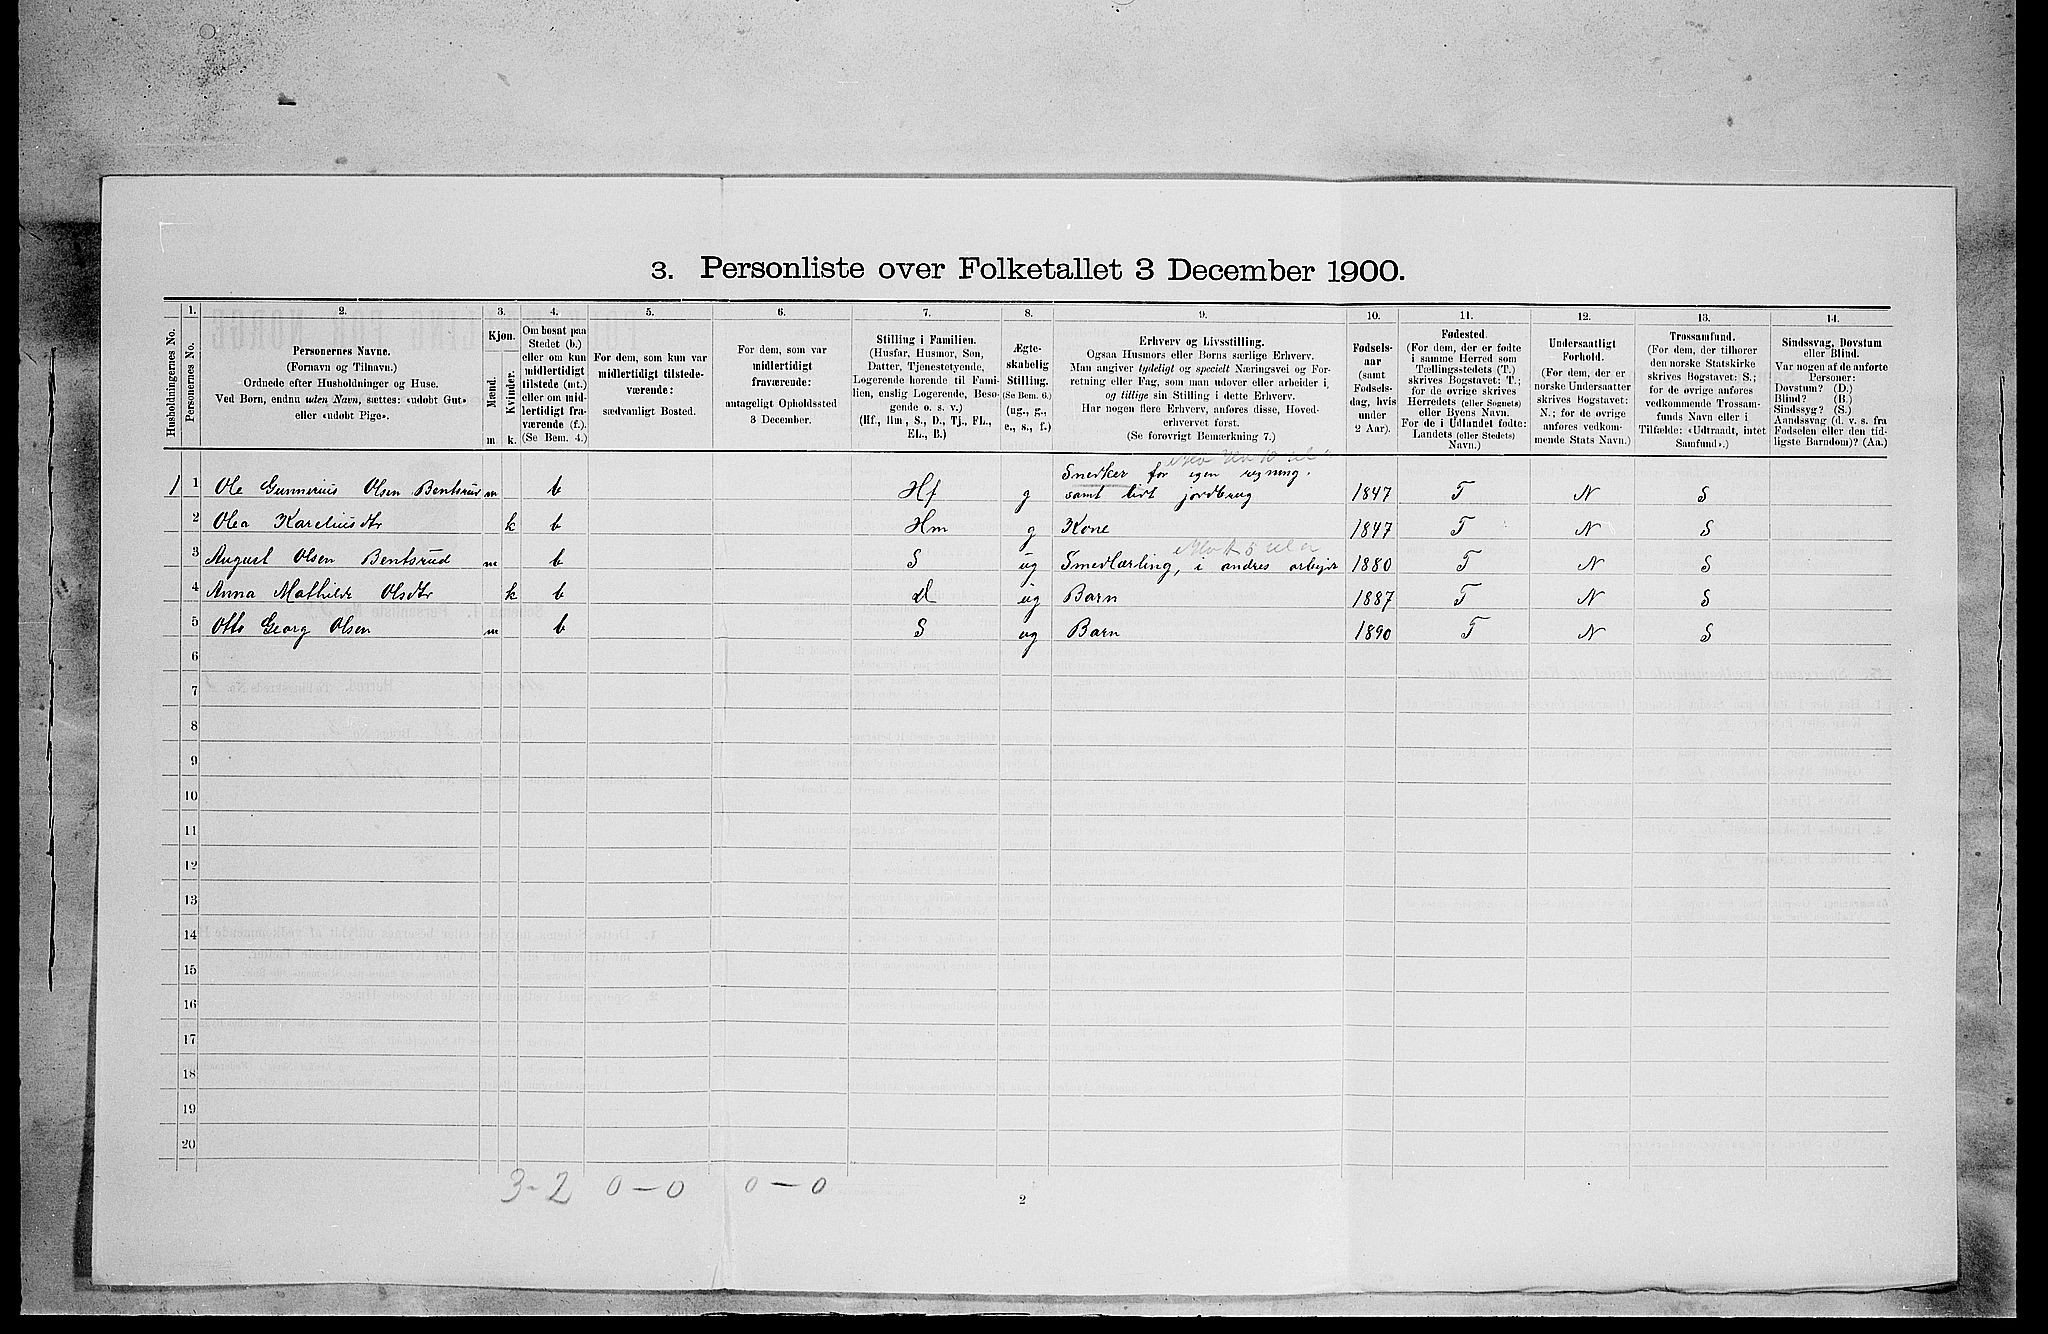 3. Personliste over Folketallet 3 December 1900.
1. 2. 3. 4. 5. 6. 7. 8. 9. 10. 11. 12. 13. 14.
Husholdningernes No.
Personernes No.
Personernes Navne.
(Fornavn og Tilnavn.)
Ordnede efter Husholdninger og Huse.
Ved Børn, endnu uden Navn, sættes: «udøbt Gut»
eller «udøbt Pige».
Kjøn.
Mænd.
Kvinder.
m k.
Om bosat paa
Stedet (b.)
eller om kun
midlertidigt
tilstede (mt.)
eller om mid-
lertidigt fra-
værende (f.).
(Se Bem. 4.)
For dem, som kun var
midlertidigt tilstede-
værende:
sædvanligt Bosted.
For dem, som var
midlertidigt
fraværende:
antageligt Opholdssted
3 December.
Stilling i Familien.
(Husfar, Husmor, Søn,
Datter, Tjenestetyende,
Logerende hørende til Fami-
lien, enslig Logerende, Besø-
gende o. s. v.)
(Hf., Hm., S., D., Tj., FL.,
EL., B.)
Ægte-
skabelig
Stilling.
(Se Bem. 6.)
(ug., g.,
e., s., f.)
Erhverv og Livsstilling.
Ogsaa Husmors eller Børns særlige Erhverv.
Man angiver tydeligt og specielt Næringsvei og For-
retning eller Fag, som man udøver eller arbeider i,
og tillige sin Stilling i dette Erhverv.
Har nogen flere Erhverv, anføres disse, Hoved-
erhvervet først.
(Se forøvrigt Bemærkning 7.)
Fødsels-
aar
(samt
Fødsels-
dag, hvis
under
2 Aar).
Fødested.
(For dem, der er fødte
i samme Herred som
Tællingsstedets (T.)
skrives Bogstavet: T.;
for de øvrige skrives
Herredets (eller Sognets)
eller Byens Navn.
For de i Udlandet fødte:
Landets (eller Stedets)
Navn.)
Undersaatligt
Forhold.
(For dem, der er
norske Undersaatter
skrives Bogstavet:
N.; for de øvrige
anføres vedkom-
mende Stats Navn.)
Trossamfund.
(For dem, der tilhører
den norske Statskirke
skrives Bogstavet: S.;
for de øvrige anføres
vedkommende Trossam-
funds Navn eller i
Tilfælde: «Udtraadt, intet
Samfund».)
Sindssvag, Døvstum
eller Blind.
Var nogen af de anførte
Personer:
Døvstum? (D.)
Blind? (B.)
Sindssyg? (S.)
Aandssvag (d. v. s. fra
Fødselen eller den tid-
ligste Barndom)? (Aa.)
Snedker for egen regning.
1 1 Ole Gunnerius Olsen Bentsrud m b Hf g samt lidt jordbrug 1847 T N S
2 Olea Kareliusdtr k b Hm g Kone 1847 T N S
3 August Olsen Bentsrud m b S ug Smedlærling, i andres arbejde 1880 T N S
4 Anna Mathilde Olsdtr k b d ug Barn 1887 T N S
5 Otto Georg Olsen m b S ug Barn 1890 T N S
6
7
8
9
10
11
12
13
14
15
16
17
18
19
20
3-2 0-0 0-0
2